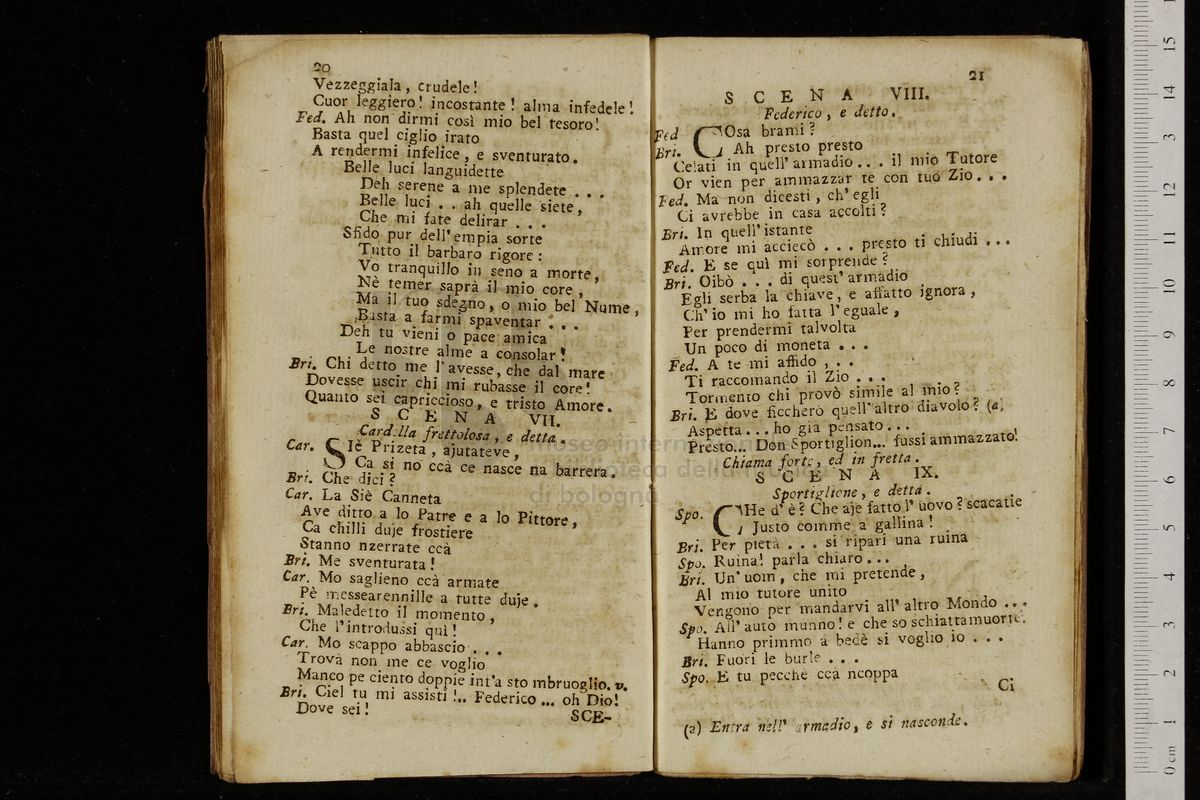 20
Vezzeggiala, crudele!
Cuor leggiero! incostante! alma infedele!
Fed. Ah non dirmi così mio bel tesoro!
Basta quel ciglio irato
A rendermi infelice, e sventurato.
Belle luci languidette
Deh serene a me splendete . . .
Belle luci . . ah quelle siete,
Che mi fate delirar . . .
Sfido pur dell'empia sorte
Tutto il barbaro rigore:
Vo tranquillo in seno a morte,
Nè temer saprà il mio core,
Ma il tuo sdegno, o mio bel Nume,
Basta a farmi spaventar . . .
Deh tu vieni o pace amica
Le nostre alme a consolar!
Bri. Chi detto me l'avesse, che dal mare
Dovesse uscir chi mi rubasse il core!
Quanto sei capriccioso, e tristo Amore.
SCENA VII.
Cardella frettolosa, e detta.
Car. SIè Prizeta, ajutateve,
Ca si no ccà ce nasce na barrera.
Bri. Che dici?
Car. La Siè Canneta
Ave ditto a lo Patre e a lo Pittore,
Ca chilli duje frostiere
Stanno nzerrate ccà
Bri. Me sventurata!
Car. Mo saglieno ccà armate
Pè messearennille a tutte duje.
Bri. Maledetto il momento,
Che l'introdussi quì!
Car. Mo scappo abbascio . . .
Trovà non me ce voglio
Manco pe ciento doppie int'a sto mbruoglio. v.
Bri. Ciel tu mi assisti!.. Federico ... oh Dio!
Dove sei!
SCE-
21
SCENA VIII.
Federico, e detto.
Fed COsa brami?
Bri. Ah presto presto
Celati in quell'armadio . . . il mio Tutore
Or vien per ammazzar te con tuo Zio . . .
Fed. Ma non dicesti, ch'egli
Ci avrebbe in casa accolti?
Bri. In quell'istante
Amore mi acciecò . . . presto ti chiudi . . .
Fed. E se quì mi sorprende?
Bri. Oibò . . . di quest'armadio
Egli serba la chiave, e affatto ignora,
Ch'io mi ho fatta l'eguale,
Per prendermi talvolta
Un poco di moneta . . .
Fed. A te mi affido , . .
Ti raccomando il Zio . . .
Tormento chi provò simile al mio?
Bri. E dove ficcherò quell'altro diavolo? (a.
Aspetta . . . ho già pensato . . .
Presto... Don Sportiglion... fussi ammazzato!
Chiama forte, ed in fretta.
SCENA IX.
Sportiglione, e detta.
Spo. CHe d'è? Che aje fatto l'uovo? scacatie
Justo comme a gallina!
Bri. Per pietà . . . si ripari una ruina
Spo. Ruina! parla chiaro . . .
Bri. Un'uom, che mi pretende,
Al mio tutore unito
Vengono per mandarvi all'altro Mondo . . .
Spo. All'auto munno! e che so schiattamuorte.
Hanno primmo a bedè si voglio io . . .
Bri. Fuori le burle . . .
Spo. E tu pecchè ccà ncoppa
Ci
(a) Entra nell'armadio, e si nasconde.
museo internazionale
biblioteca della musica
di bologna